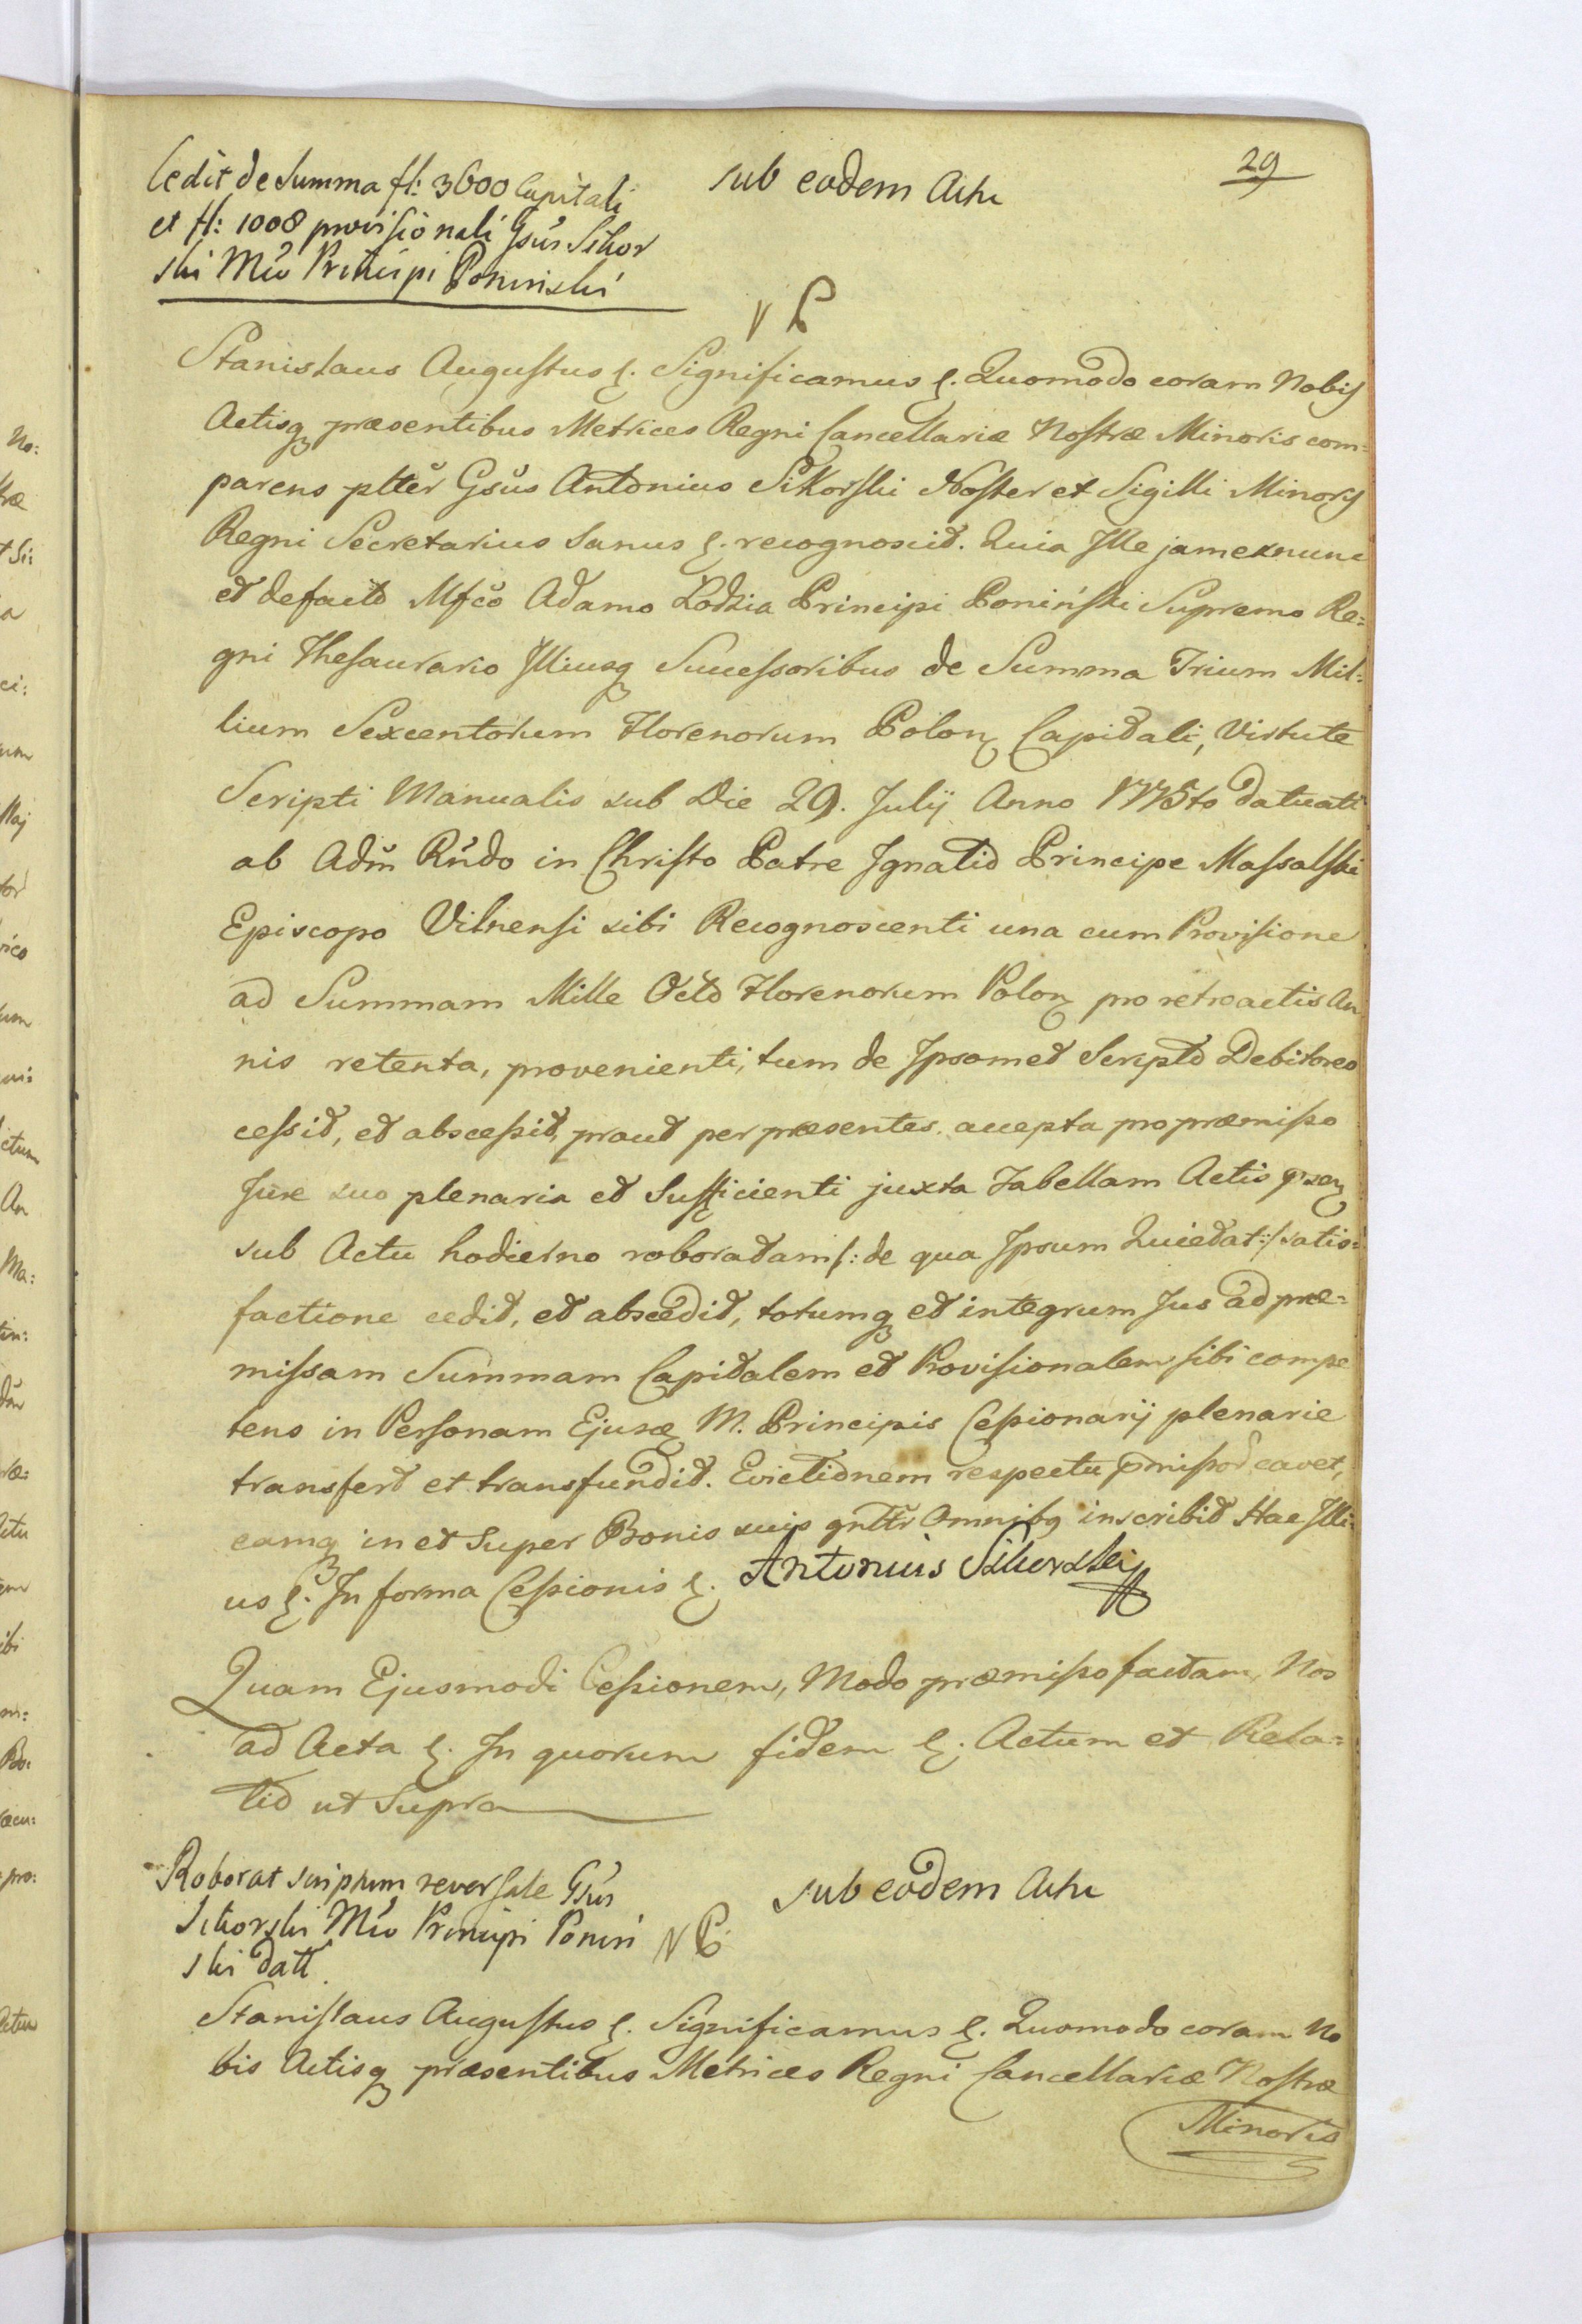 29
Cedit de Summa fl: 3600 Capitali
et fl: 1008 provisionali Gsus Sikor
ski Mco Principi Poninski
sub eodem Actu
Stanislaus Augustus &. Significamus &. Quomodo coram Nobis
Actisq præsentibus Metrices Regni Cancellariæ Nostræ Minoris com=
parens plter Gsus Antonius Sikorski Noster et Sigilli Minoris
Regni Secretarius sanus &. recognoscit. Quia Ille jam exnunc
et defacto Mfco Adamo Łodzia Principi Poniński Supremo Re=
gni Thesaurario Illiusq Successoribus de Summa Trium Mil=
lium Sexcentorum Florenorum Polon Capitali, Virtute
Scripti Manualis sub Die 29. Julij Anno 1775to datuati
ab Adm Rndo in Christo Patre Ignatio Principe Massalski
Episcopo Vilnensi sibi Recognoscenti una cum Provisione
ad Summam Mille Octo Florenorum Polon pro retroactis An
nis retenta, provenienti, tum de Ipsomet Scripto Debitoreo
cessit, et abscessit, prout per præsentes accepta pro præmisso
Jure suo plenaria et Sufficienti juxta Tabellam Actis præn
sub Actu hodierno roboratam /: de qua Ipsum Quietat :/ satis=
factione cedit, et abscedit, totumq et integrum Jus ad præ=
missam Summam Capitalem et Provisionalem sibi compe
tens in Personam Ejusd M. Principis Cessionarij plenarie
transfert et transfundit. Evictionem respectu pmissor cavet,
eamq in et Super Bonis suis gnltr Omnibq inscribit Hac Illi=
us &. In forma Cessionis &. Antonius Sikorski
Quam Ejusmodi Cessionem, Modo præmisso factam, Nos
ad Acta &. In quorum fidem &. Actum et Rela=
tio ut Supra
Roborat scriptum reversale Gsus
Sikorski Mco Principi Ponin
ski datt.
sub eodem Actu
Stanislaus Augustus &. Significamus &. Quomodo coram No
bis Actisq præsentibus Metrices Regni Cancellariæ Nostræ
Minoris